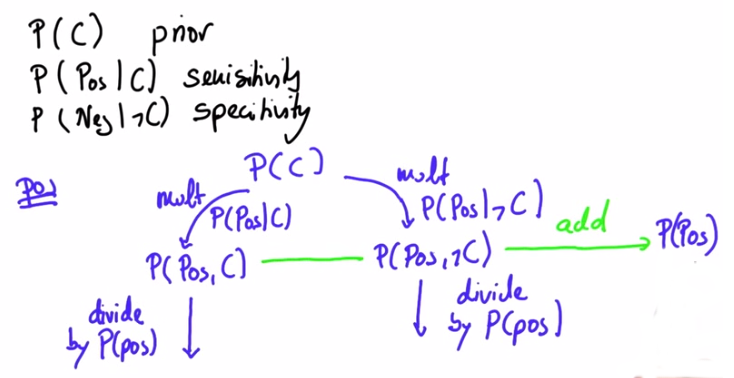 P(C) prior
P(Pos|C) sensitivity
P(Neg|¬C) specitivity
Pos
P(C)
mult
mult
P(Pos|C)
P(Pos|¬C)
add
P(Pos, C)
P(Pos, ¬C)
P(Pos)
divide
by P(pos)
divide
by P(pos)